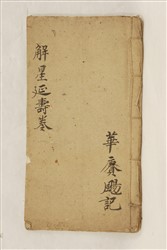 解星延壽卷
華賡颺記